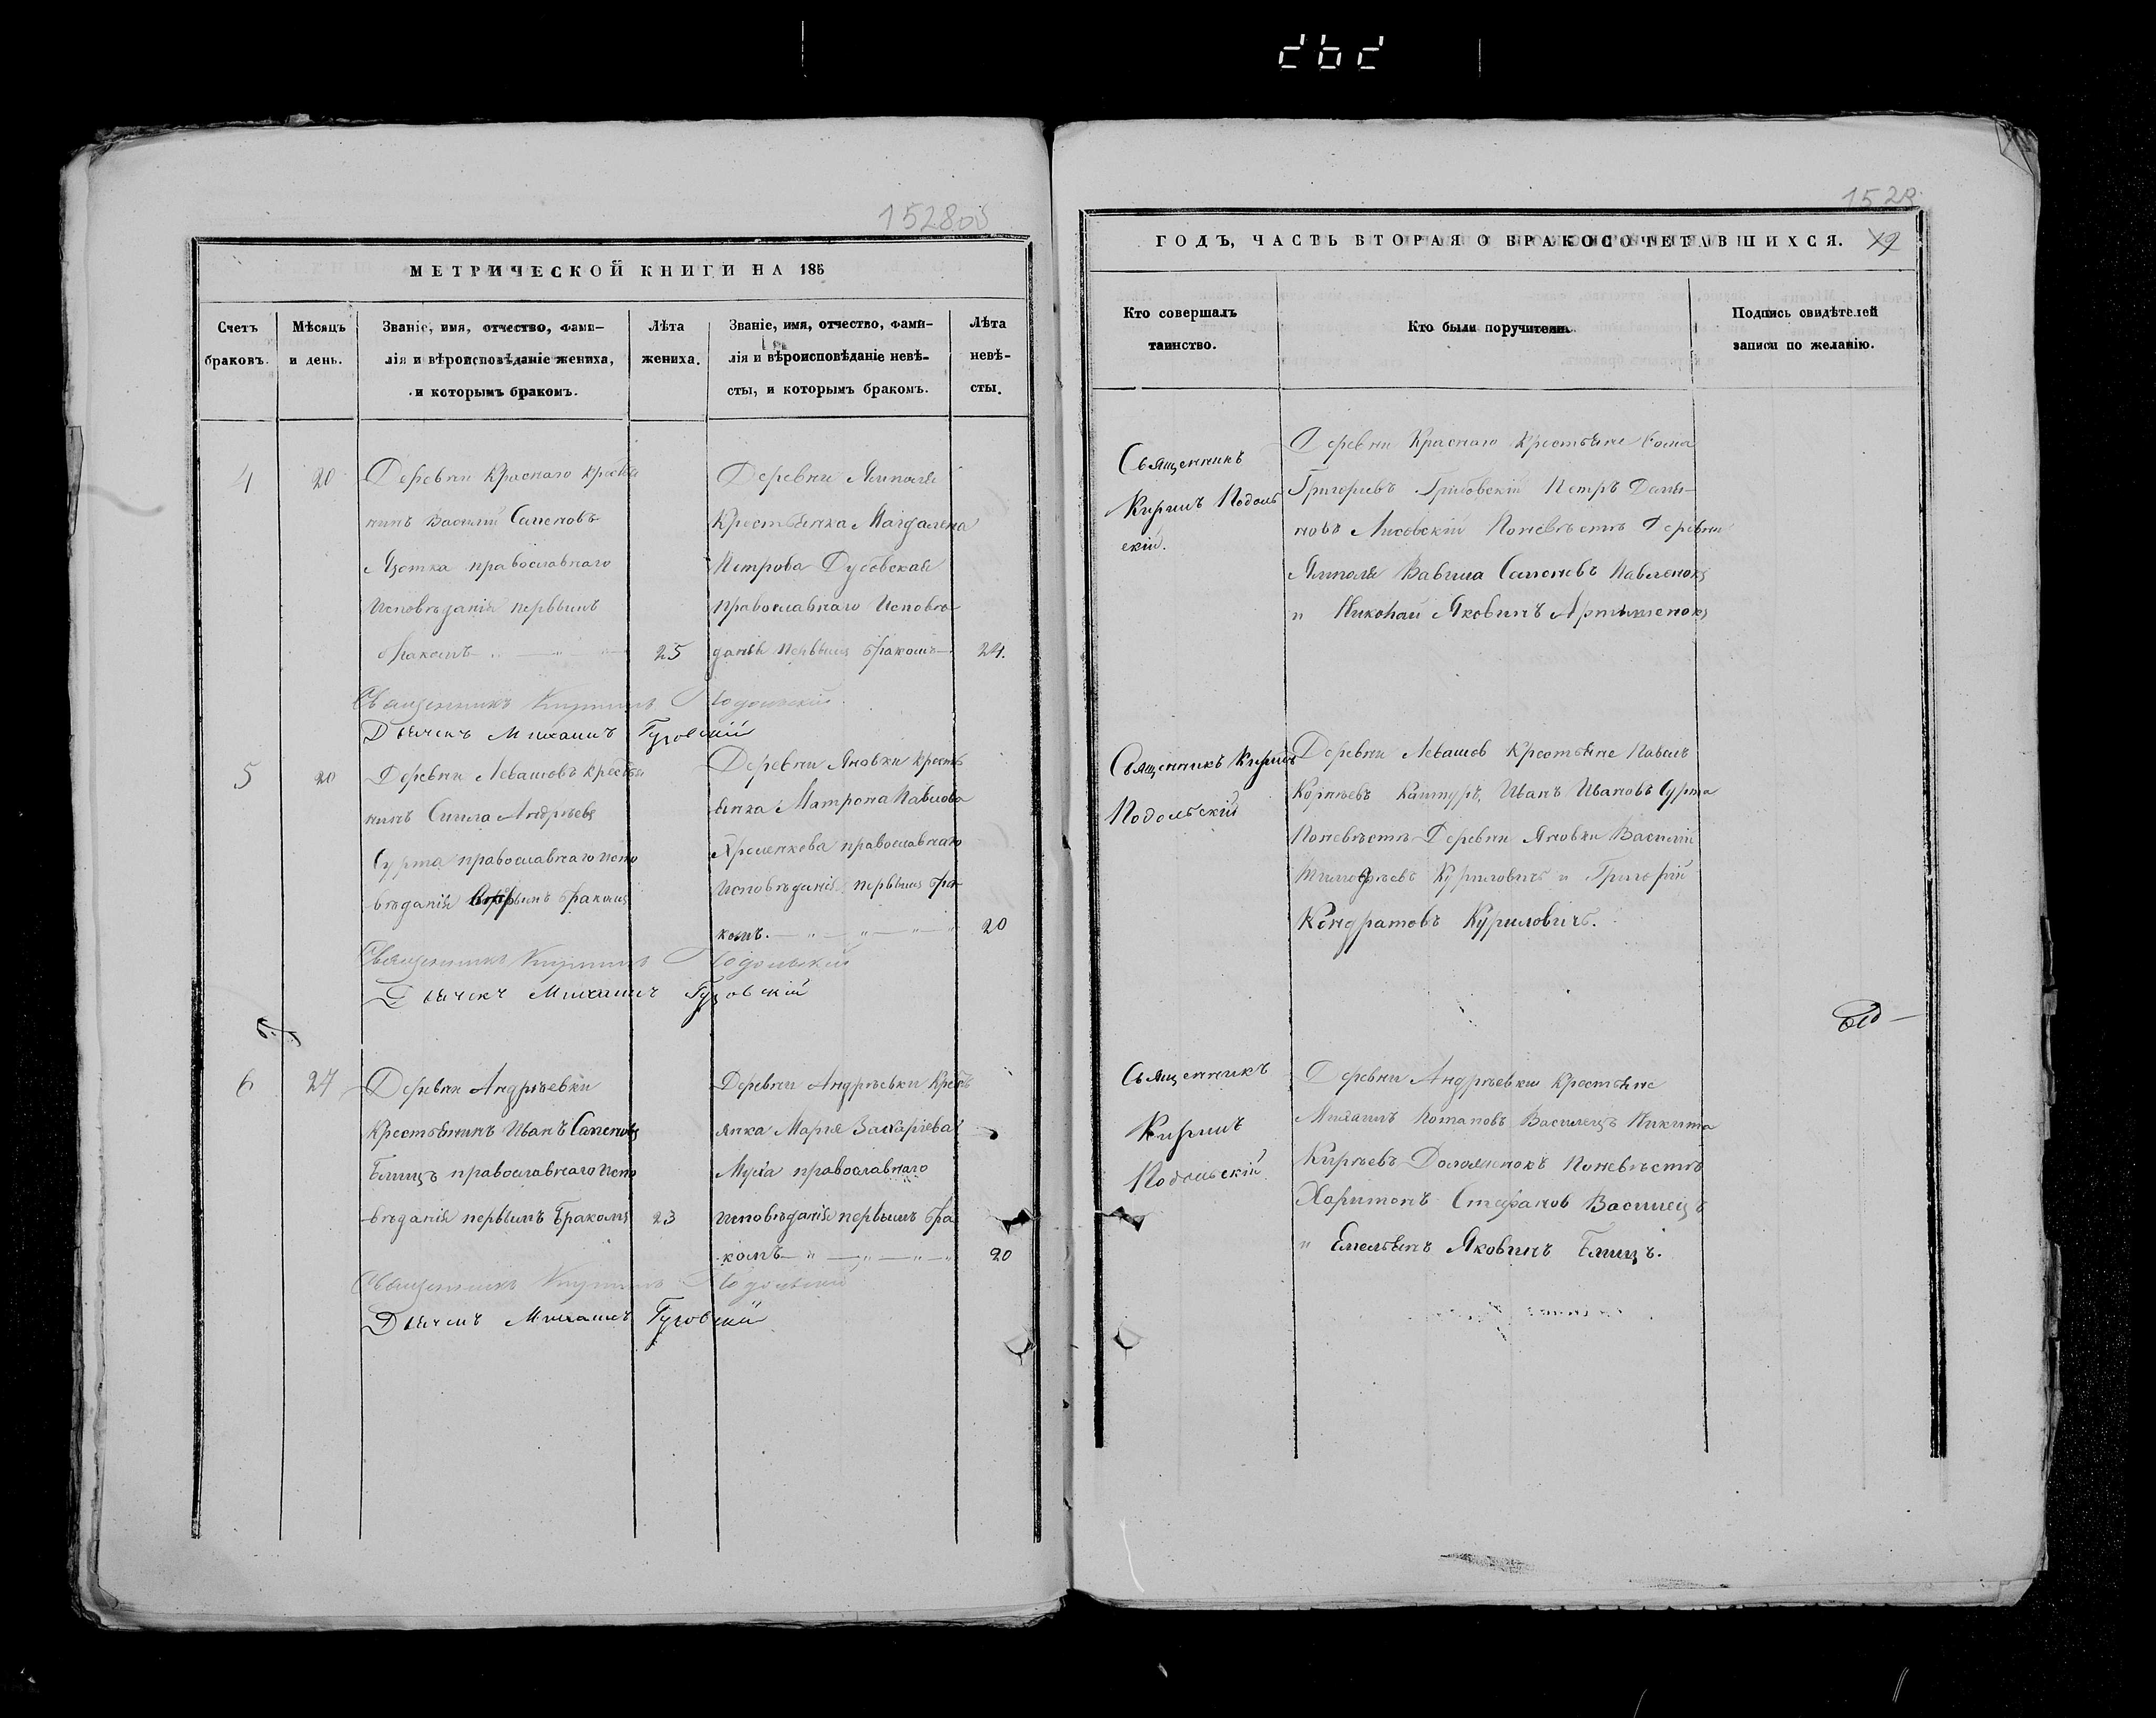 1528об
1529
МЕТРИЧЕСКОЙ КНИГИ НА 185
Счетъ браковъ.
Мѣсяцъ и день.
Званіе, имя, отчество, фами-
лія и вѣроисповѣданіе жениха,
и которымъ бракомъ.
Лѣта жениха.
Званіе, имя, отчество, фами-
лія и вѣроисповѣданіе невѣ-
сты, и которымъ бракомъ.
Лѣта невѣ-
сты.
4
20
Деревни Краснаго Крестья
нинъ Василій Семеновъ
православнаго
Исповѣданія первымъ
бракомъ
25
Деревни Ямполя
Крестьянка Магдалена
Петрова Дубовская
православнаго Исповѣ
данія первымъ бракомъ
24.
Священникъ Кирилъ Подольскій
Дьячекъ Михаилъ Гуговскій
5
20
Деревни Левашовъ Крестья
нинъ Сишла Андрѣевъ
Сурта православнаго испо
вѣданія бракомъ
Деревни Яновки Кресть
янка Матрона Павлова
Хроменкова православнаго
Исповѣданія первымъ бра
комъ.
20
Священникъ Кирилъ Подольскій
Дьячекъ Михаилъ Гуговскій
6
27
Деревни Андрѣевки
Крестьянинъ Иванъ Семеновъ
Елицъ православнаго Испо
вѣданія первымъ бракомъ
23
Деревни Андрѣевки Кресть
янка Марія Захаріева
православнаго
Исповѣданія первымъ бра
комъ
20
Священникъ Кирилъ Подольскій
Дьячекъ Михаилъ Гуговскій
ГОДЪ, ЧАСТЬ ВТОРАЯ О БРАКОСОЧЕТАВШИХСЯ.
Кто совершалъ
таинство.
Кто были поручители.
Подпись свидѣтелей
записи по желанію.
Священникъ
Кирилъ Подоль
скій.
Деревни Краснаго Крестьяне Фома
Григорьевъ Грибовскій Петръ Демья-
новъ Лисовскій Поневѣстѣ Деревни
Ямполя Вавила Семеновъ Павленокъ
и Николай Яковлевъ
Священникъ Кирилъ
Подольскій
Деревни Левашов Крестьяне Павелъ
Корнѣевъ Каштуръ, Иванъ Ивановъ Сурта
Поневѣстѣ Деревни Яновки Василій
Тимофѣевъ Куриловичъ и Григорій
Кондратовъ Куриловичъ.
Священникъ
Кирилъ
Подольскій
Деревни Андрѣевки Крестьяне
Михаилъ Потаповъ Василецъ Никита
Кирѣевъ Поневѣстѣ
Харитонъ Стефанов Василецъ
и Емельянъ Яковлевъ Елицъ.